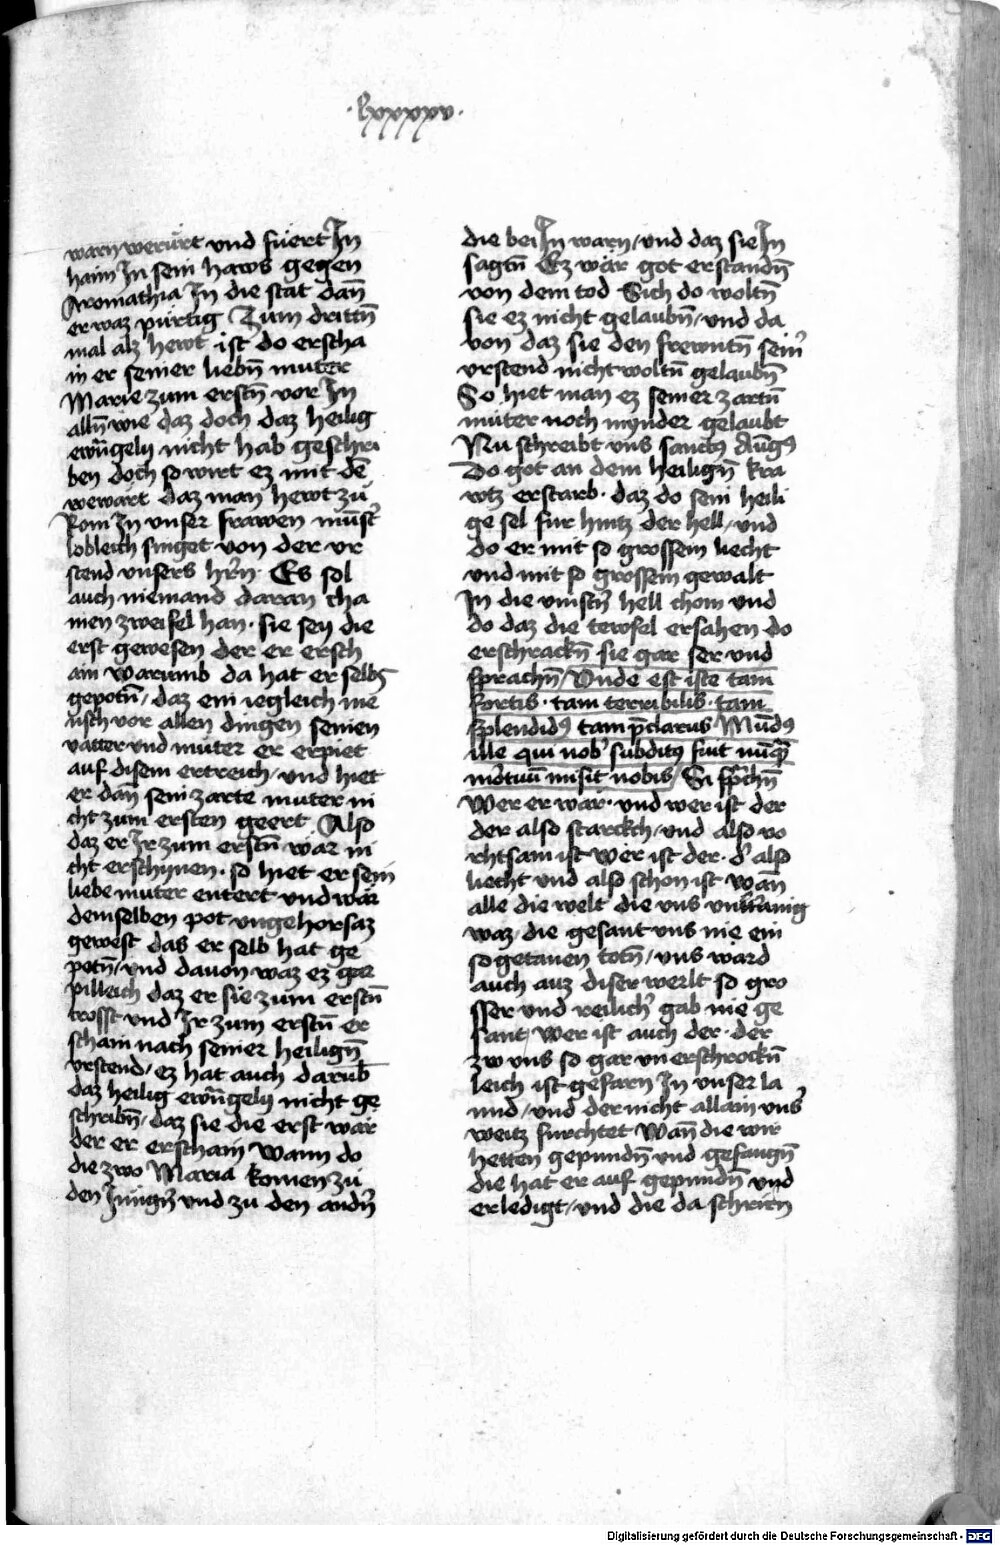 ·lxxxxv·
warn werürt und füert In
haim In sein haws gegen
Aromathia In die stat dan̄
er waz pürtig Zum drittn̄
mal alz hewt ist do erscha
in er seiner liebn̄ muter
Marie zum erstn̄ vor In
alln̄ wie daz doch daz heilig
ewūgely nicht hab geschri
ben doch so wirt ez mit dē
wewärt daz man hewt zu
Rom In unser frawen münst'
lobleich singet von der ur
stend unsers hr̄n· Es sol
auch niemand daran cha
inen zweifel han· sie sey die
erst gewesen der er ersch
ain Warumb da hat er selbs
gepotn̄/ daz ein iegleich me
nsch vor allen dingen seinen
vatter und muter er erpiet
auf disem ertreich/ und hiet
er dan̄ sein zarte muter ni
cht zum ersten geert Also
daz er Ir zum erstn̄ wär ni
cht erschynen· so hiet er sein
liebe muter entert und wär
demselben pot ungehorsaz
gewest das er selb hat ge
potn̄/ und davon waz ez gar
pilleich daz er sie zum erstn̄
trosst und Ir zum erstn̄ er
scham nach seiner heilign̄
urstend/ ez hat auch darūb
daz heilig ewūgely nicht ge
schribn̄/ daz sie die erst wär
der er erschain Wann do
die zwo Maria komen zu
den Jung'n und zu den and'n
die bei In warn/ und daz sie In
sagtn̄ Ez wär got erstandn̄
von dem tod Sich do woltn̄
sie ez nicht gelaubn̄/ und da
von daz sie den frewntn̄ sein'
urstend nicht woltn̄ gelaubn̄
So hiet man ez seiner zartn̄
muter noch mynder gelaubt
Nu schreibt uns sanctꝰ Augꝰ
Do got an dem heilign̄ kra
wtz erstarb· daz do sein heili
ge sel fur hintz der hell/ und
do er mit so grossem liecht
und mit so grossem gewalt
In die vinst'n hell chom und
do daz die tewfel ersahen do
erschrackn̄ sie gar ser und
sprachn̄/ Unde est iste tam
fortis· tam terribilis· tam
splendidꝰ tam p̄clarus Mūdꝰ
ille qui nob' subditꝰ fuit nūq̄
mortuū misit nobis/ Si sprachn̄
Wer er wär· und wer ist der
der also starckch/ und also vo
rhtsam ist Wer ist der· d' also
liecht und also schon ist Wan̄
alle die welt die uns untt'anig
waz/ die gesant uns nie ein
sogetanen totn̄/ uns ward
auch auz diser werlt so gro
sser und reilich' gab nie ge
sant/ Wer ist auch der· der
zw uns so gar unerschrockn̄
leich ist gefarn In unser la
nnd/ und der nicht allain uns'
weitz furchtet Wan̄ die wir
hetten gepundn̄ und gefangn̄
die hat er auf gepundn̄ und
erledigt/ und die da schrien
Digitalisierung gefördert durch die Deutsche Forschungsgemeinschaft - DFG